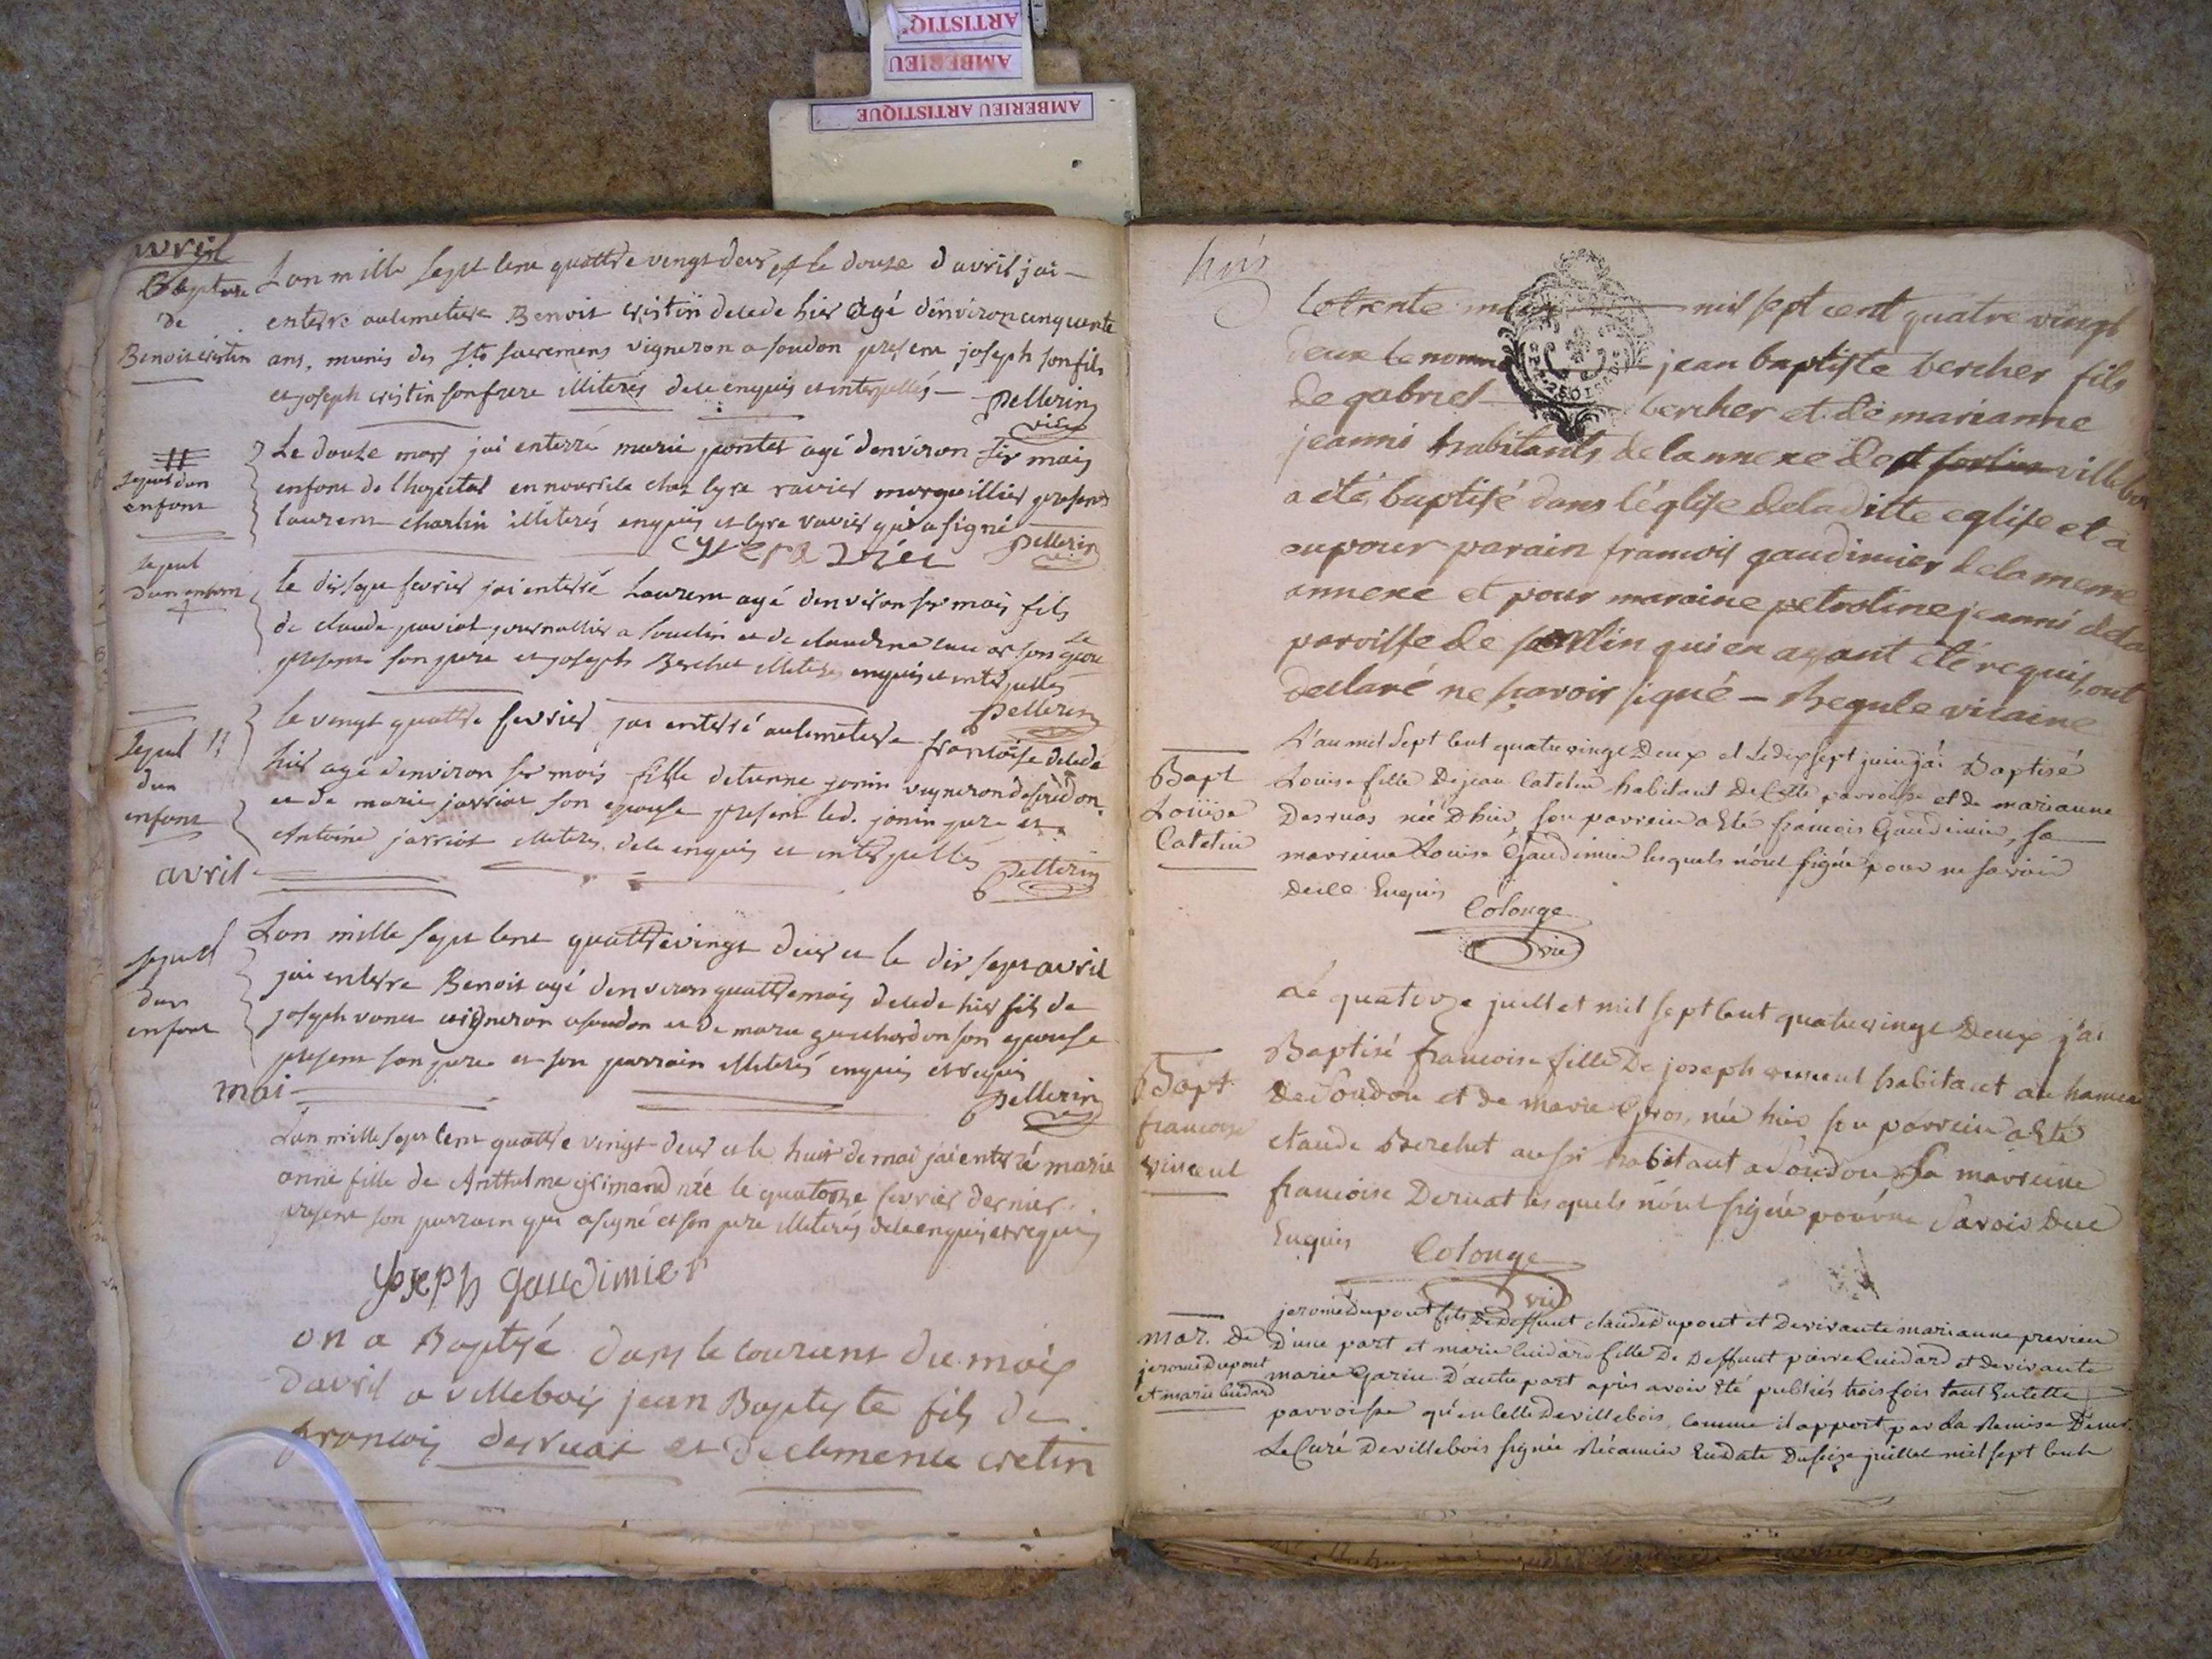 ARTISTIQ
AMBERIEU
AMBERIEU ARTISTIQUE
avril
Lan mille sept cent quattre vingt deux et le douze davril jai
de
enterré au cimetiere Benoit cristin decede hier agé denviron cinquente
Benoit cristin
ans, munis des sts sacremens vigneron a soudon present joseph son fils
et joseph cristin son frere illiterés de ce enquis et interpellés
Pellerin
vic
Le douze mars jai enterré marie pontet agé denviron six mois
sepul dun
enfant
enfant de lhopital en nourrice chez lyre ravier marguillier presents
laurent charlin illiterés enquis et lyre ravier qui a signé
Pellerin
sepul
dun enfant
le dix sept fevrier jai enterré Laurent agé denviron six mois fils
de claude journallier a et de claudine son
present son pere et joseph Berchet illiterés enquis et interpellés
Pellerin
le vingt quattre fevrier jai enterré au cimetiere francoise decede
sepul
dun
enfant
hier agé denviron six mois fille detienne jonin vigneron de soudon
et de marie jarriot son epouse present led. jonin pere et
Antoine jarriot illiteres de ce enquis et interpellés
Pellerin
avril
Lan mille sept cent quattrevingt deux et le dix sept avril
sepul
dun
enfant
jai enterré Benoit agé denviron quattre mois decede hier fils de
joseph vigneron a soudon et de marie son epouse
present son pere et son parrain illiterés enquis et requis
Pellerin
mai
Lan mille sept cent quattre vingt deux et le huit de mai jai enterré marie
anne fille de Anthelme grimand née le quatorze fevrier dernier
present son parrain qui a signé et son pere illiterés de ce enquis et requis
joseph gaudimier
on a Baptisé dans le courant du mois
davril a villebois jean Baptiste fils de
francois desruat et de clemence cretin
le trente mil sept cent quatre vingt
deux le nommé jean baptiste bercher fils
de gabriel bercher et de marianne
jeanni habitants de lannexe de villebois
a été baptisé dans léglise de laditte eglise et a
eu pour parain francois gaudimier de la meme
annexe et pour maraine petroline jeanni de la
paroisse de qui en ayant été requis, ont
declaré ne savoir signé vicaire
L'an mil Sept Cent quatrevingt Deux et Le dix sept juin j'ai Baptisé
Bapt
Louise
Catelin
Louise fille De jean Catelin habitant De Cette parroisse et de marianne
Desruas née D'hier, son parrein a Eté francois Gaudimier, sa
marreine Louise Gaudimier lesquels n'ont signé pour ne savoir
Dece Enquis
Colonge
vic
Le quatorze juillet mil sept Cent quatrevingt Deux j'ai
Bapt
francoise
vincent
Baptisé francoise fille De joseph vincent habitant au hameau
De Soudon et de marie Gros, née hier son parrein a Eté
claude Berchet aussi habitant a Soudon Sa marreine
francoise Deruat lesquels n'ont signé pour ne Savoir Dece
Enquis
Colonge
vic
mar. de
jerome Dupont
et marie Cuidard
jerome Dupont fils De deffunt claude Dupont et De vivante marianne
D'une part et marie Cuidard fille De Deffunt pierre Cuidard et de vivante
marie Garin D'autre part après avoir Eté publiés trois fois tant En cette
parroisse qu'en celle De villebois, comme il appert par la Remise De mr.
Le Curé De villebois signée Récamier En date Du seize juillet mil sept Cent